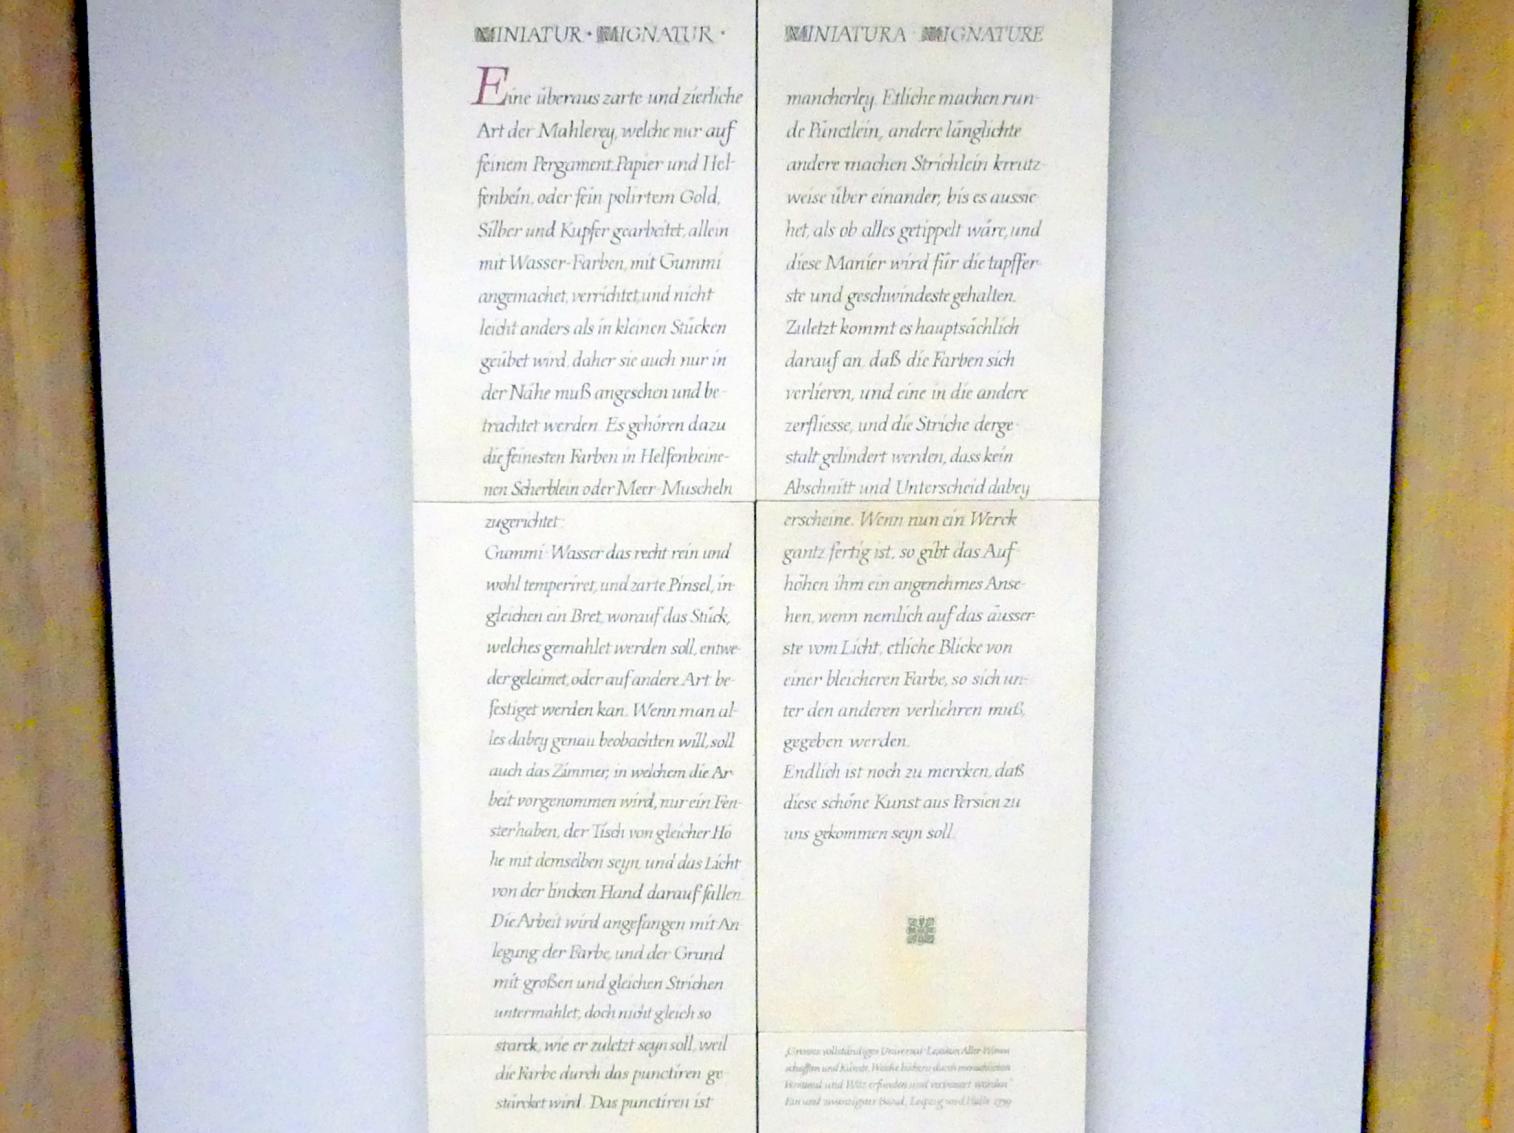 MINIATUR · MIGNATUR ·
Eine überaus zarte und zierliche
Art der Mahlerey, welche nur auf
feinem Pergament, Papier und Hel-
fenbein, oder fein polirtem Gold,
Silber und Kupfer gearbeitet, allein
mit Wasser-Farben, mit Gummi
angemachet, verrichtet, und nicht
leicht anders als in kleinen Stücken
geübet wird, daher sie auch nur in
der Nähe muß angesehen und be-
trachtet werden. Es gehören dazu
die feinesten Farben in Helfenbeine-
nen Scherblein oder Meer-Muscheln
zugerichtet:
Gummi-Wasser das recht rein und
wohl temperiret, und zarte Pinsel, in-
gleichen ein Bret, worauf das Stück,
welches gemahlet werden soll, entwe-
der geleimet, oder auf andere Art be-
festiget werden kan. Wenn man al-
les dabey genau beobachten will, soll
auch das Zimmer, in welchem die Ar-
beit vorgenommen wird, nur ein Fen-
ster haben, der Tisch von gleicher Hö-
he mit demselben seyn, und das Licht
von der lincken Hand darauf fallen.
Die Arbeit wird angefangen mit An-
legung der Farbe, und der Grund
mit großen und gleichen Strichen
untermahlet, doch nicht gleich so
starck, wie er zuletzt seyn soll, weil
die Farbe durch das punctiren ge-
stärcket wird. Das punctiren ist
MINIATURA · MIGNATURE
mancherley. Etliche machen run-
de Pünctlein, andere länglichte
andere machen Strichlein kreutz-
weise über einander, bis es aussie-
het, als ob alles getippelt wäre, und
diese Manier wird für die tapffer-
ste und geschwindeste gehalten.
Zuletzt kommt es hauptsächlich
darauf an, daß die Farben sich
verlieren, und eine in die andere
zerfliesse, und die Striche derge-
stalt gelindert werden, dass kein
Abschnitt und Unterscheid dabey
erscheine. Wenn nun ein Werck
gantz fertig ist, so gibt das Auf-
höhen ihm ein angenehmes Anse-
hen, wenn nemlich auf das äusser-
ste vom Licht, etliche Blicke von
einer bleicheren Farbe, so sich un-
ter den anderen verliehren muß,
gegeben werden.
Endlich ist noch zu mercken, daß
diese schöne Kunst aus Persien zu
uns gekommen seyn soll.
„Grosses vollständiges Universal-Lexikon Aller Wissen-
schafften und Künste, Welche bishero durch menschlichen
Verstand und Witz erfunden und verbessert worden“
Ein und zwanzigster Band, Leipzig und Halle 1739